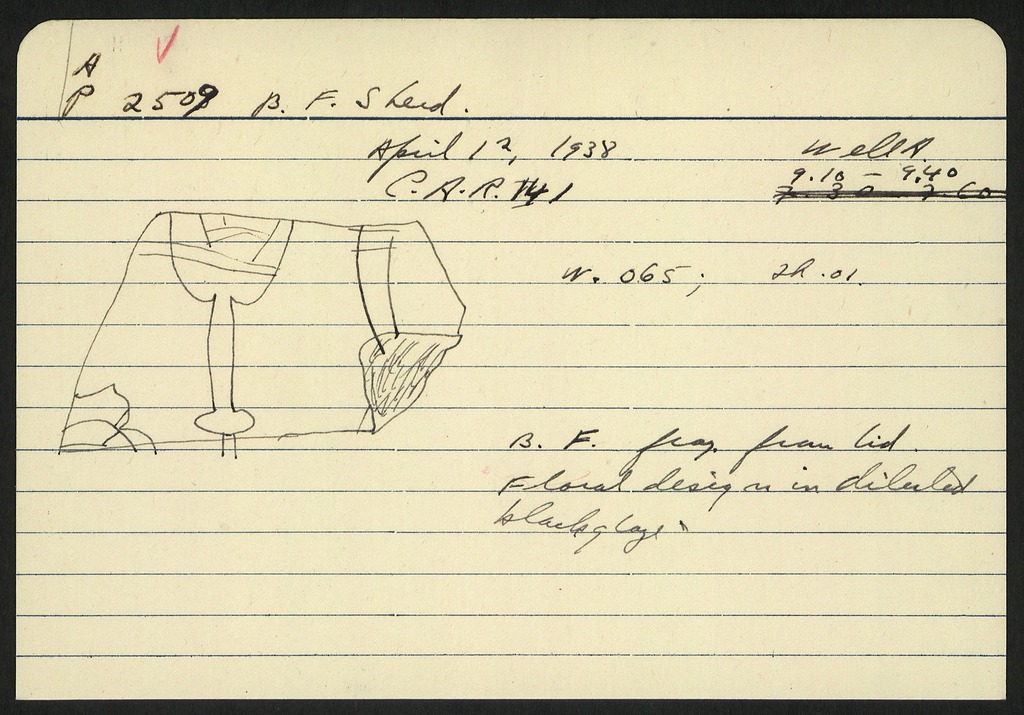 A
P 2509 B. F. Sherd.
April 12, 1938 Well A.
9.10 – 9.40
C. A. R. 1
7.30 7.60
W. 065; Th .01.
B. F. frag. from lid.
Floral design in diluted
black glaze.